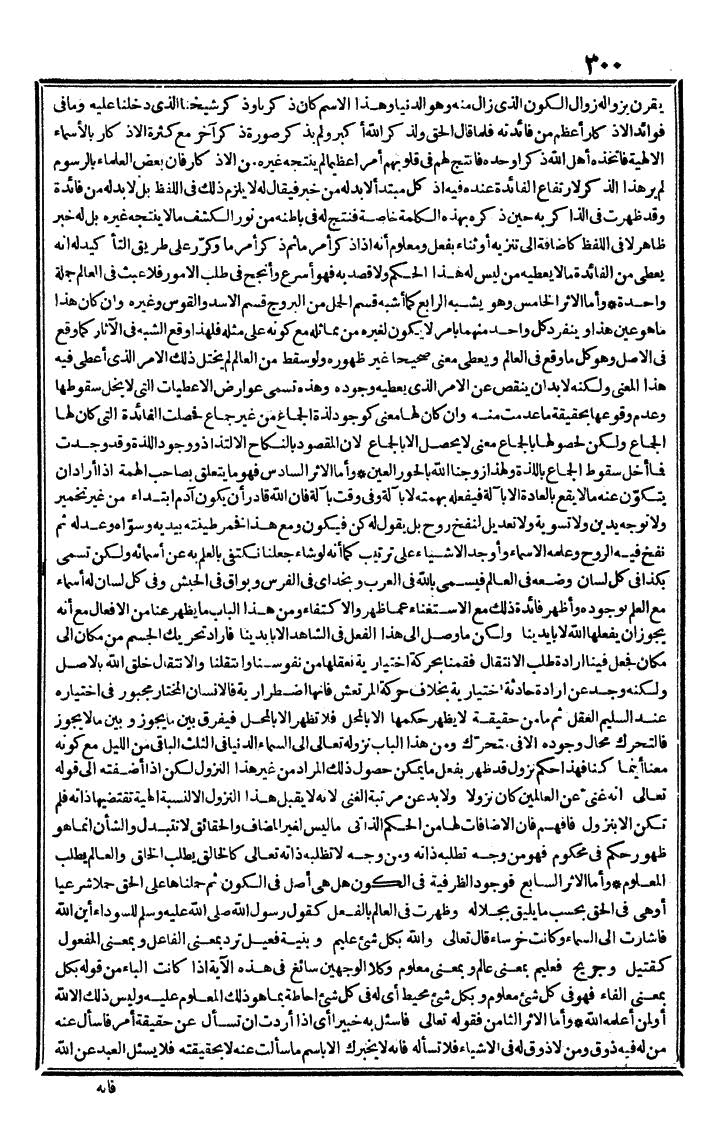 ٣٠٠
يقرن بزواله زوال الكون الذى زال منه وهو الدنيا وهذا الاسم كان ذكر باوذكر شيخنا الذى دخلنا عليه وما فى
فوائد الاذكار أعظم من فائدته فلما قال الحق ولذكر الله أكبر ولم يذكر صورة ذكر آخر مع كثرة الاذكار بالأسماء
الالهية فاتخذه أهل الله ذكرا وحده فانتج لهم فى قلوبهم أمرا عظيما لم ينتجه غيره من الاذكار فان بعض العلماء بالرسوم
لم يرهذا الذكر لارتفاع الفائدة عنده فيه اذ كل مبتدأ لابدله من خبر فيقال له لا يلزم ذلك فى اللفظ بل لابدله من فائدة
وقد ظهرت فى الذاكر به حين ذكره بهذه الكلمة خاصة فنتج له فى باطنه من نور الكشف مالا ينتجه غيره بل له خبر
ظاهر لا فى اللفظ كاضافة الى تنزيه أو ثناء بفعل ومعلوم أنه اذا ذكر أمر ماثم ذكر أمر ما وكرّر على طريق التأكيد له انه
يعطى من الفائدة مالا يعطيه من ليس له هذا الحكم ولا قصد به فهو أسرع وأنجح فى طلب الامور فلا عبث فى العالم جملة
واحدة * وأما الاثر الخامس وهو يشبه الرابع كما أشبه قسم الحمل من البروج قسم الاسد والقوس وغيره وان كان هذا
ماهو عين هذا وينفرد كل واحد منهما بأمر لا يكون لغيره من يماثله مع كونه على مثله فلهذا وقع الشبه فى الآثار كما وقع
فى الاصل وهو كل ما وقع فى العالم ويعطى معنى صحيحا غير ظهوره ولوسقط من العالم لم يختل ذلك الامر الذى أعطى فيه
هذا المعنى ولكنه لابد ان ينقص عن الامر الذى يعطيه وجوده وهذه تسمى عوارض الاعطيات التى لايخل سقوطها
وعدم وقوعها بحقيقة ما عدمت منه وان كان لها معنى كوجود لذة الجماع من غير جماع فحصلت الفائدة التى كان لها
الجماع ولكن لحصولها بالجماع معنى لا يحصل الا بالجماع لان المقصود بالنكاح الالتذاذ ووجود اللذة وقد وجدت
فما أخل سقوط الجماع باللذة ولهذا زوجنا الله بالحور العين * وأما الاثر السادس فهو ما يتعلق بصاحب الهمة اذا أراد ان
يتكوّن عنه مالا يقع بالعادة الا بآلة فيفعله بهمته لابآلة وفى وقت بآلة فان الله قادر أن يكون آدم ابتداء من غير تخمير
ولا توجه يدين ولا تسوية ولا تعديل لنفخ روح بل يقول له كن فيكون ومع هذا فخمر طينته بيديه وسوّاه وعدله ثم
نفخ فيه الروح وعلمه الاسماء وأوجد الاشياء على ترتيب كما أنه لوشاء جعلنا نكتفى بالعلم به عن أسمائه ولكن تسمى
بكذا فى كل لسان وضعه فى العالم فيسمى بالله فى العرب وبخداى فى الفرس وبواق فى الحبش وفى كل لسان له أسماء
مع العلم بوجوده وأظهر فائدة ذلك مع الاستغناء عما ظهر والاكتفاء ومن هذا الباب ما يظهر عنا من الافعال مع أنه
يجوز ان يفعلها الله لا بايدينا ولكن ما وصل الى هذا الفعل فى الشاهد الا بايدينا فاراد تحريك الجسم من مكان الى
مكان فجعل فينا ارادة طلب الانتقال فقمنا بحركة اختيارية نعقلها من نفوسنا وانتقلنا والانتقال خلق الله بالاصل
ولكنه وجد عن ارادة حادثة اختيارية بخلاف حركة المرتعش فانها اضطرارية فالانسان المختار مجبور فى اختياره
عند السليم العقل ثم مامن حقيقة لا يظهر حكمها الا بالمحل فلا تظهر الا بالمحل فيفرق بين ما يجوز وبين مالا يجوز
فالتحرك محال وجوده الا فى متحرّك ومن هذا الباب نزوله تعالى الى السماء الدنيا فى الثلث الباقى من الليل مع كونه
معنا أينما كنا فهذا حكم نزول قد ظهر بفعل ما يمكن حصول ذلك المراد من غير هذا النزول لكن اذا أضفته الى قوله
تعالى انه غنىّ عن العالمين كان نزولا ولابد عن مرتبة الغنى لانه لا يقبل هذا النزول الا لنسبة الهية تقتضيها ذاته فلم
تكن الا بنزول فافهم فان الاضافات لها من الحكم الذاتى ماليس لغير المضاف والحقائق لا تتبدل والشأن انما هو
ظهور حكم فى محكوم فهو من وجه تطلبه ذاته ومن وجه لا تطلبه ذاته تعالى كالخالق يطلب الخلق والعالم يطلب
المعلوم * وأما الاثر السابع فوجود الظرفية فى الكون هل هى أصل فى الكون ثم حملناها على الحق حملا شرعيا
أوهى فى الحق بحسب ما يليق بجلاله وظهرت فى العالم بالفعل كقول رسول الله صلى الله عليه وسلم للسوداء أين الله
فاشارت الى السماء وكانت خرساء قال تعالى والله بكل شئ عليم وبنية فعيل ترد بمعنى الفاعل وبمعنى المفعول
كقتيل وجريح فعليم بمعنى عالم وبمعنى معلوم وكلا الوجهين سائغ فى هذه الآية اذا كانت الباء من قوله بكل
بمعنى الفاء فهو فى كل شئ معلوم وبكل شئ محيط أى له فى كل شئ احاطة بما هو ذلك المعلوم عليه وليس ذلك الا لله
أولمن أعلمه الله * وأما الاثر الثامن فقوله تعالى فاسئل به خبيرا أى اذا أردت ان تسأل عن حقيقة أمر فاسأل عنه
من له فيه ذوق ومن لاذوق له فى الاشياء فلا تسأله فانه لا يخبرك الا باسم ما سألت عنه لا بحقيقته فلا يسئل العبد عن الله
فانه